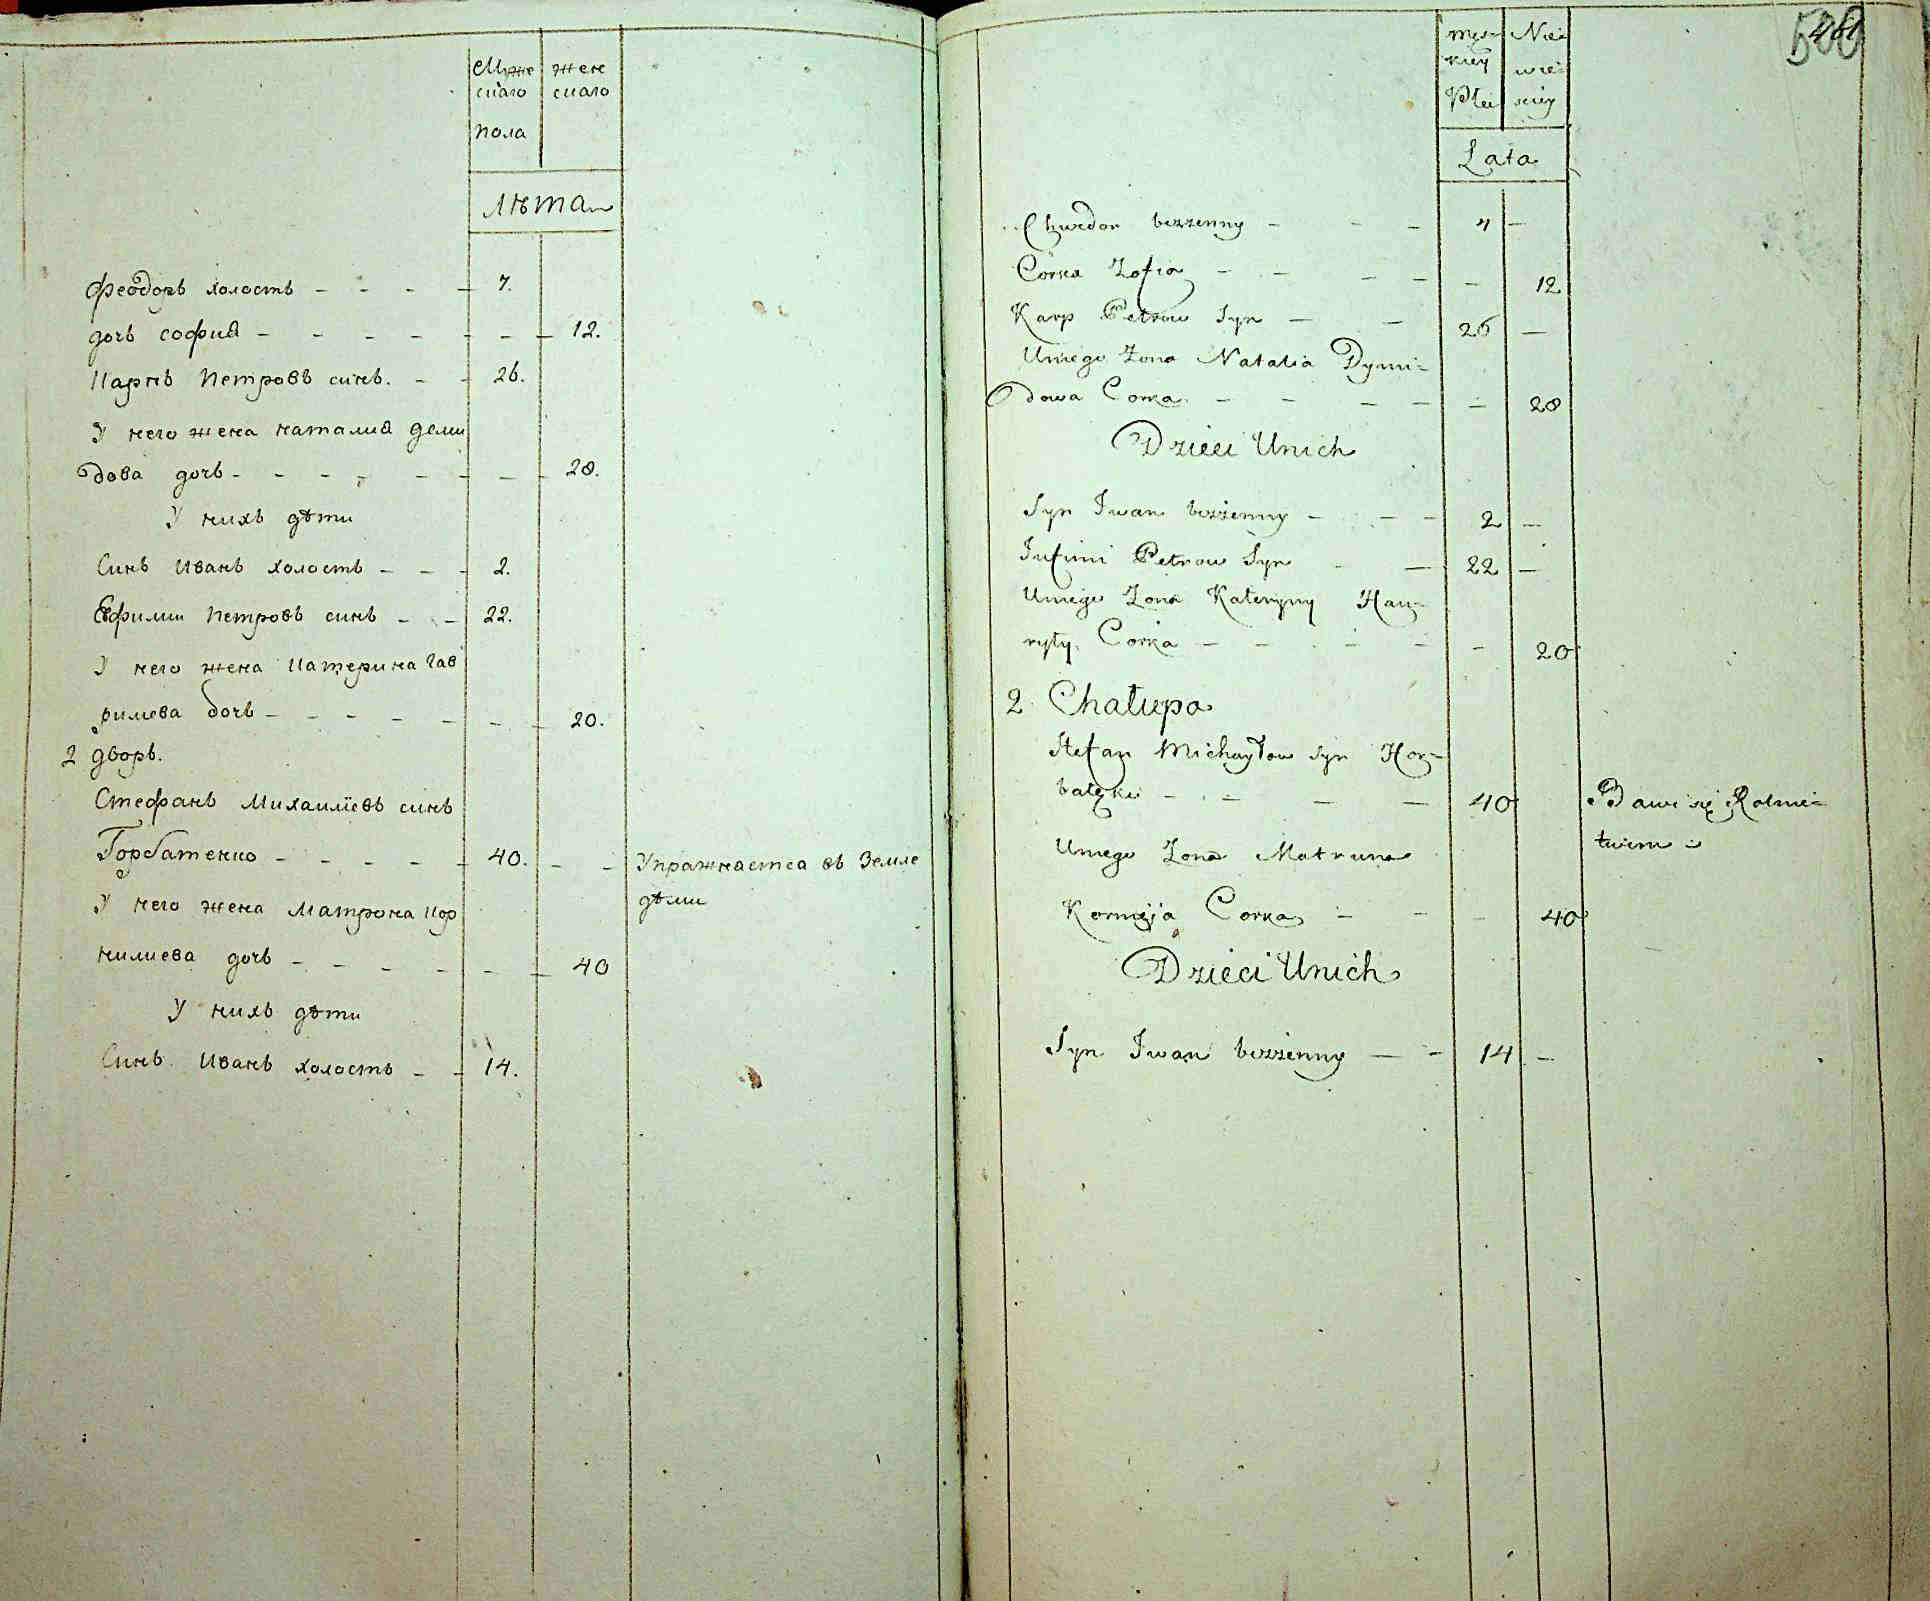 Муже
скаго
пола
жен
скаго
Лѣта
Феодоръ холостъ - - - - 7.
дочь софия - - - - - - - 12.
Карпъ Петровъ синъ. - - 26.
У него жена наталия деми
дова дочь - - - - - - - - 28.
У нихъ дѣти
Синъ Иванъ холостъ - - - 2.
Евфимии Петровъ синъ - - - 22.
У него жена Катерина Гав
рилова дочь - - - - - - - 20.
2 дворъ.
Стефанъ Михаилиевъ синъ
Горбатенко - - - - - 40. - - Упражнается въ Земле
дѣлии
У него жена Матрона Кор
нилиева дочь - - - - - - 40
У нихъ дѣти
Синъ Иванъ холостъ - - 14.
500
męz-
kiey
Płci
Nie-
wie-
sciey
Lata
Chwedor bezzenny - - - 7 -
Córka Zofia - - - - - 12
Karp Petrow Syn - - 26 -
Uniego Zona Natalia Dymi-
dowa Corka - - - - - 28
Dzieci Unich
Syn Iwan bezzenny - - - 2 -
Jufimi Petrow Syn - - 22 -
Uniego Zona Kateryny Haw-
ryły Corka - - - - - 20
2 Chałupa
Stefan Michayłow syn Hor-
batęko - - - - 40 Bawi się Rolni-
twem
Uniego Zona Matruna
Korneja Corka - - - 40
Dzieci Unich
Syn Iwan bezzenny - - 14 -